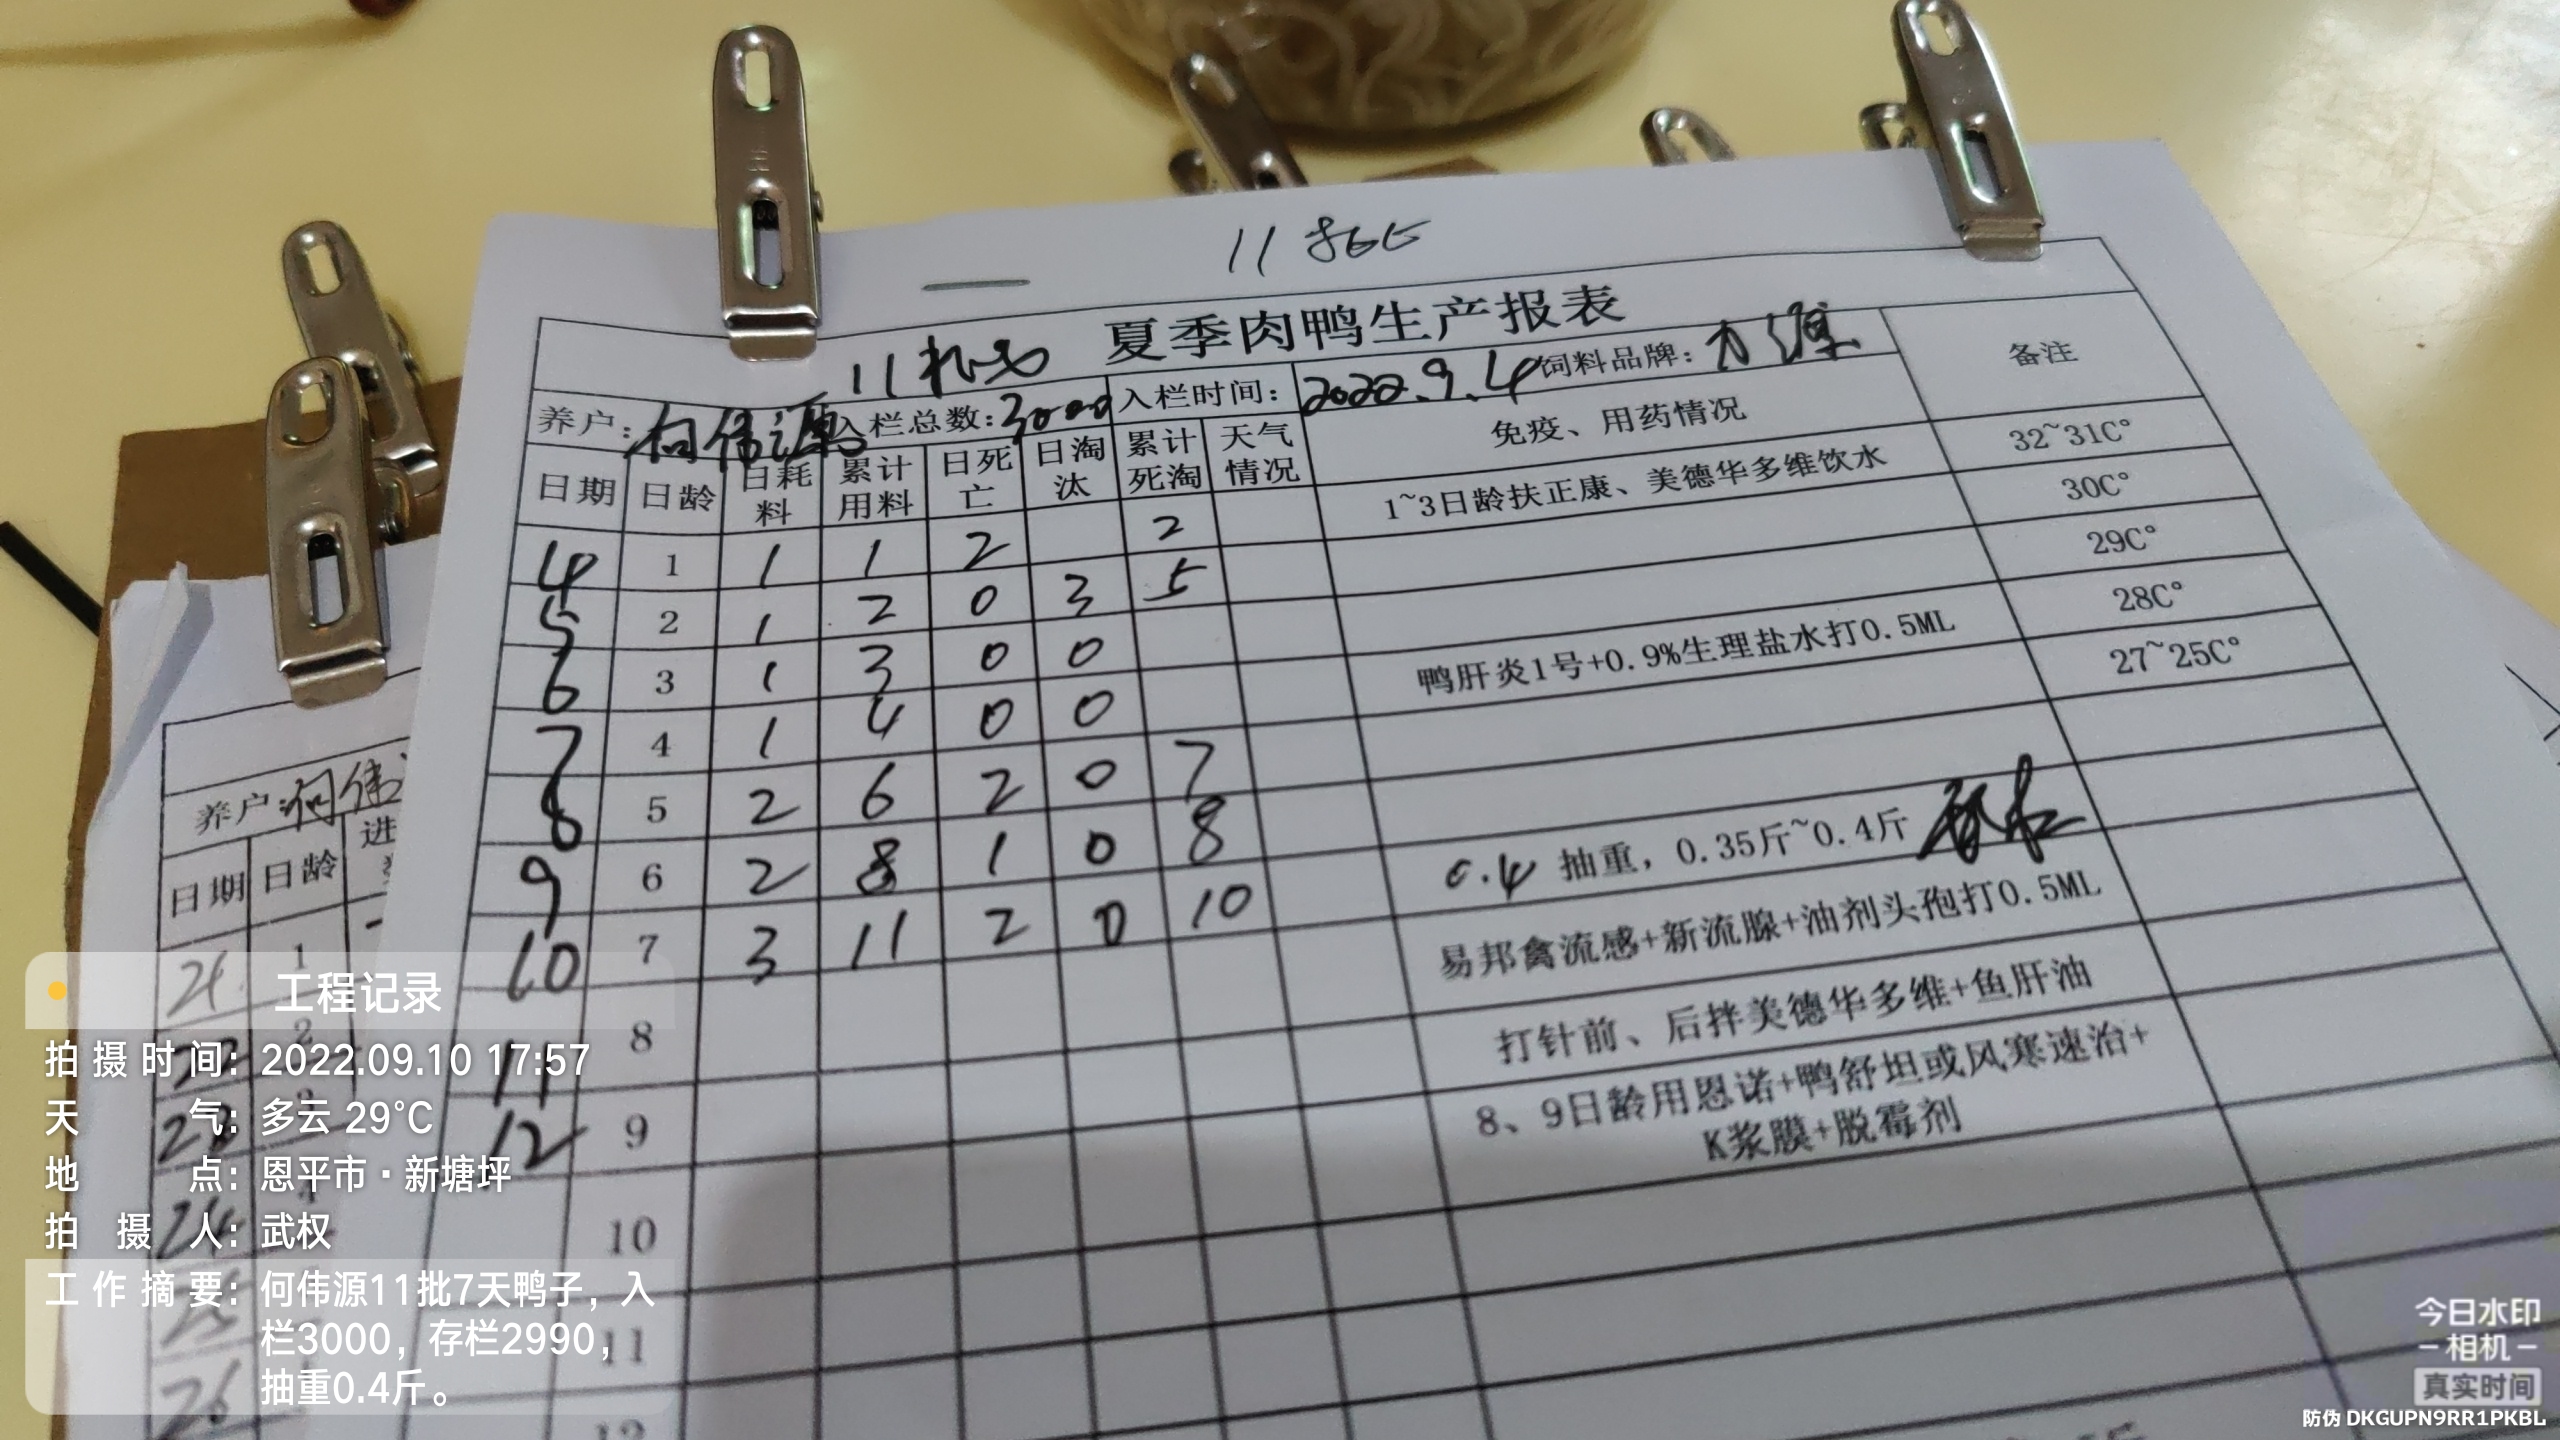 11批
夏季肉鸭生产报表
养户: 何伟源 入栏总数: 3000 入栏时间: 2022.9.4 饲料品牌: 备注
日期 日龄 日耗料 累计用料 日死亡 日淘汰 累计死淘 天气情况 免疫、用药情况
4 1 1 1 2 2 1~3日龄扶正康、美德华多维饮水 32~31C°
5 2 1 2 0 3 5 30C°
6 3 1 3 0 0 29C°
7 4 1 4 0 0 鸭肝炎1号+0.9%生理盐水打0.5ML 28C°
8 5 2 6 2 0 7 27~25C°
9 6 2 8 1 0 8
10 7 3 11 2 0 10 0.4 抽重, 0.35斤~0.4斤
11 8 易邦禽流感+新流腺+油剂头孢打0.5ML
12 9 打针前、后拌美德华多维+鱼肝油
10 8、9日龄用恩诺+鸭舒坦或风寒速治+
K浆膜+脱霉剂
11
12
养户: 何伟
日期 日龄 进
21 1
22 2
23 3
24 4
25
26
工程记录
拍摄时间: 2022.09.10 17:57
天气: 多云 29°C
地点: 恩平市·新塘坪
拍摄人: 武权
工作摘要: 何伟源11批7天鸭子, 入
栏3000, 存栏2990,
抽重0.4斤。
今日水印
-相机-
真实时间
防伪 DKGUPN9RR1PKBL